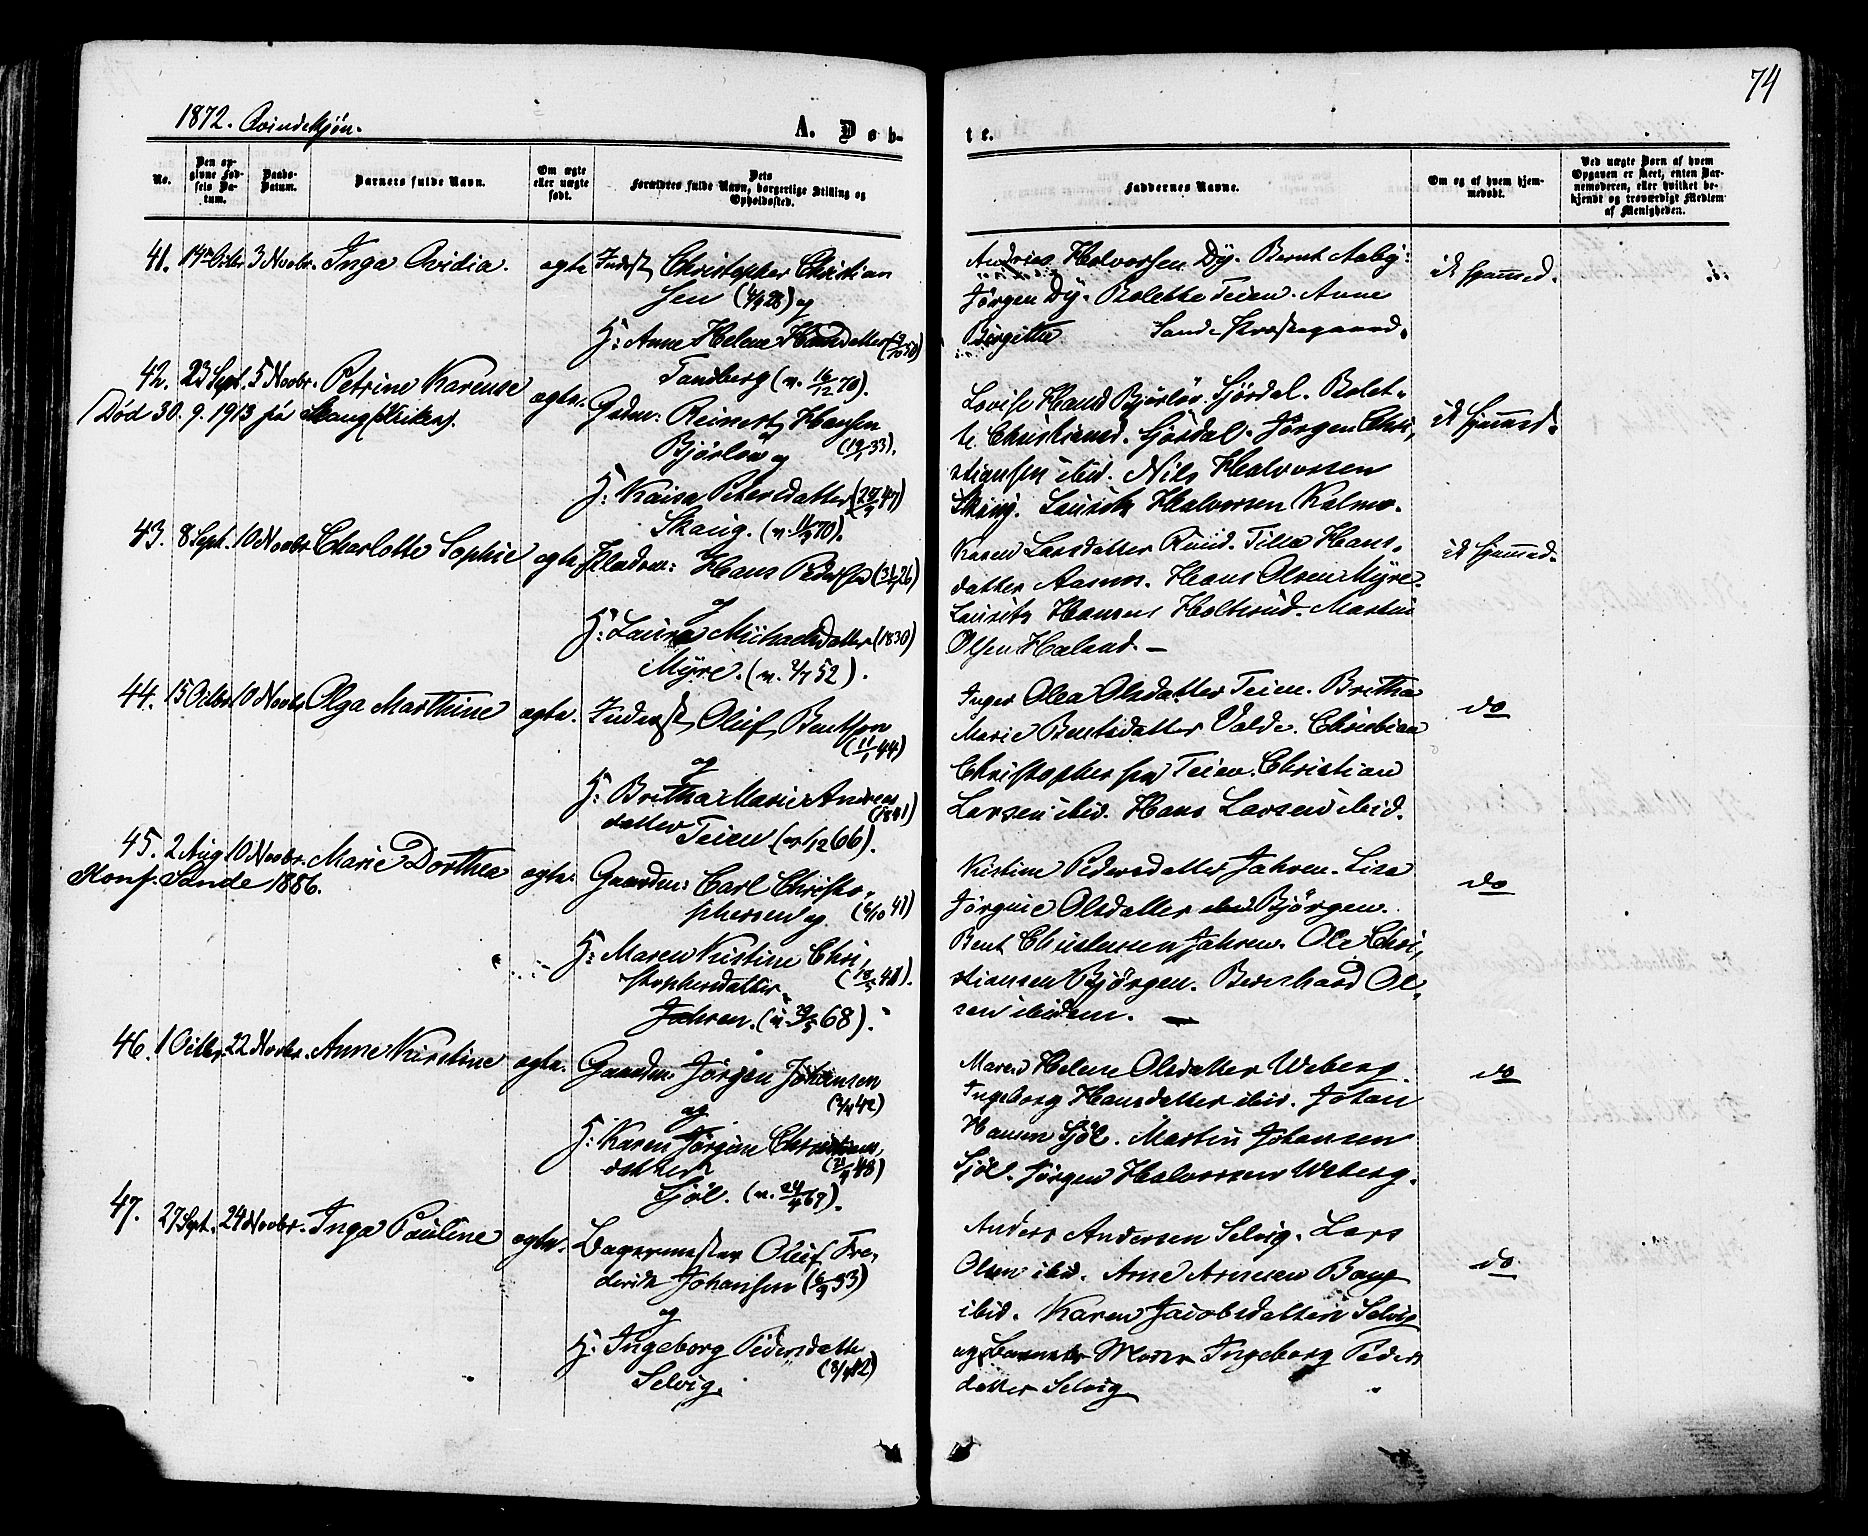 74
1872. Qvindekjøn.
A. Døb-
te.
No.
Den opgivne Fødsels Datum.
Daabs-Datum.
Barnets fulde Navn.
Om ægte eller uægte født.
Dets Forældres fulde Navn, borgerlige Stilling og Opholdssted.
Faddernes Navne.
Om og af hvem hjemmedøbt.
Ved uægte Børn af hvem Opgaven er skeet, enten Barnemoderen, eller hvilket bekjendt og troværdigt Medlem af Menigheden.
41. 14de Octbr 3 Novbr. Inga Ovidia. ægte Inderst Christopher Christian
sen (28) og
H: Anne Helene Hansdatter (50)
Tandberg (v. 16/12 70).
Andreas Halvorsen Dy. Bernt Aaby.
Jørgen Dy. Bolette Teien. Anne
Birgitte Sande Præstegaard.
ik hjemmed.
42. 23 Sept. 5 Novbr. Petrine Karense ægte. Gdm: Reinert Hansen
Død 30. 9. 1913 på Skaug
Bjørløw og (33).
H: Kaisa Petersdatter (47)
Skaug. (v. 70).
Lovise Hansd Bjørløv. Sjørdal. Bolet-
te Christiansd. Gjørdal. Jørgen Chri
stiansen ibid. Nils Halvorsen
Skaug. Lauritz Halvorsen Kalmo.
ik hjemmed.
43. 8 Sept. 10 Novbr. Charlotte Sophie ægte Hans Peders (26)
og
H: Laura Michaelsdatter (1830)
Myre. (v. 52).
Karen Larsdatter Ruud. Hans-
datter Aasnes. Hans Olsen Myre.
Lauritz Hansen Holtsrud. Martin
Olsen Haland. —
ik hjemmed.
44. 15 Octbr 10 Novbr. Olga Marthine ægte. Inderst Oluf Bentsen
(11/1 44)
og
H: Britha Marie Andreas
(1841)
datter Teien (v. 66).
Inger Olea Olsdatter Teien. Britha
Marie Bentsdatter Valde. Christian
Christophersen Teien. Christian
Larsen ibid. Hans Larsen ibid.
do
45. 2 Aug 10 Novbr. Marie Dorthea ægte. Gaardm: Carl Christo-
Konf. Sande 1886.
phersen og (6/10 41)
H: Maren Kistine Chri
stophersdatter
Jahren. (v. 68).
Kistine Pedersdatter Jahren. Lise
Jørgine Olsdatter Bjørgen.
Bent Christensen Jahren. Ole Chri
stiansen Bjørgen. Bernhard Ol-
sen ibidem. —
do
46. 1 Octbr. 22 Novbr. Anne Kirstine ægte. Gaardm: Jørgen Johansen
(42)
og
H: Karen Jørgine Christians
datter (48)
Sjøl. (v. 24/4 67).
Maren Helene Olsdatter Weberg.
Ingeborg Hansdatter ibid. Johan
Hansen Sjøl. Martin Johansen
Sjøl. Jørgen Halvorsen Weberg.
do
47. 27 Sept. 24 Novbr. Inga Pauline ægte. Bagermester Oluf Fre-
derik Johansen (33)
og
H: Ingeborg Pedersdatter
Selvig.
Anders Andersen Selvig. Lars
Olsen ibid. Arne Arnesen Bang
ibid. Karen Jacobsdatter Selvig
og Barnets Moder Ingeborg Peders
datter Selvig
do